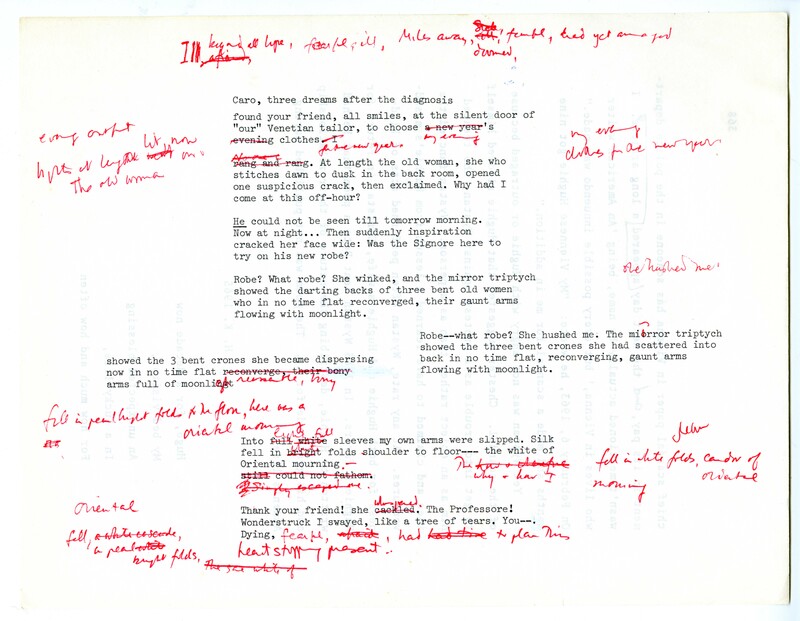 Ill, beyond all hope, fearful, ill, Miles away, doomed, fearful, had yet arranged
Caro, three dreams after the diagnosis
found your friend, all smiles, at the silent door of
"our" Venetian tailor, to choose a new year's
evening clothes. I my evening
for the new year.
rang and rang. At length the old woman, she who
stitches dawn to dusk in the back room, opened
one suspicious crack, then exclaimed. Why had I
come at this off-hour?
evening outfit
lights at length went on.
lit, now
The old woman
my evening
clothes for the new year.
He could not be seen till tomorrow morning.
Now at night... Then suddenly inspiration
cracked her face wide: Was the Signore here to
try on his new robe?
she hushed me.
Robe? What robe? She winked, and the mirror triptych
showed the darting backs of three bent old women
who in no time flat reconverged, their gaunt arms
flowing with moonlight.
Robe--what robe? She hushed me. The mirror triptych
showed the three bent crones she had scattered into
back in no time flat, reconverging, gaunt arms
flowing with moonlight.
showed the 3 bent crones she became dispersing
now in no time flat reconverge, their bony
arms full of moonlight reassemble, bony
fell in pearl bright folds to the floor, here was a
oriental mourning
Into full white sleeves my own arms were slipped. Silk
fell in bright folds shoulder to floor--- the white of
Oriental mourning.
still could not fathom.
Simply escaped me.
The
why & how I
fell in white folds, candor of
mourning oriental
Thank your friend! she cackled. The Professore!
Wonderstruck I swayed, like a tree of tears. You--.
Dying, fearful, afraid, had had time to plan this
heart stopping present.
oriental
fell, a white cascade,
a pearl white
bright folds,
The sole white of